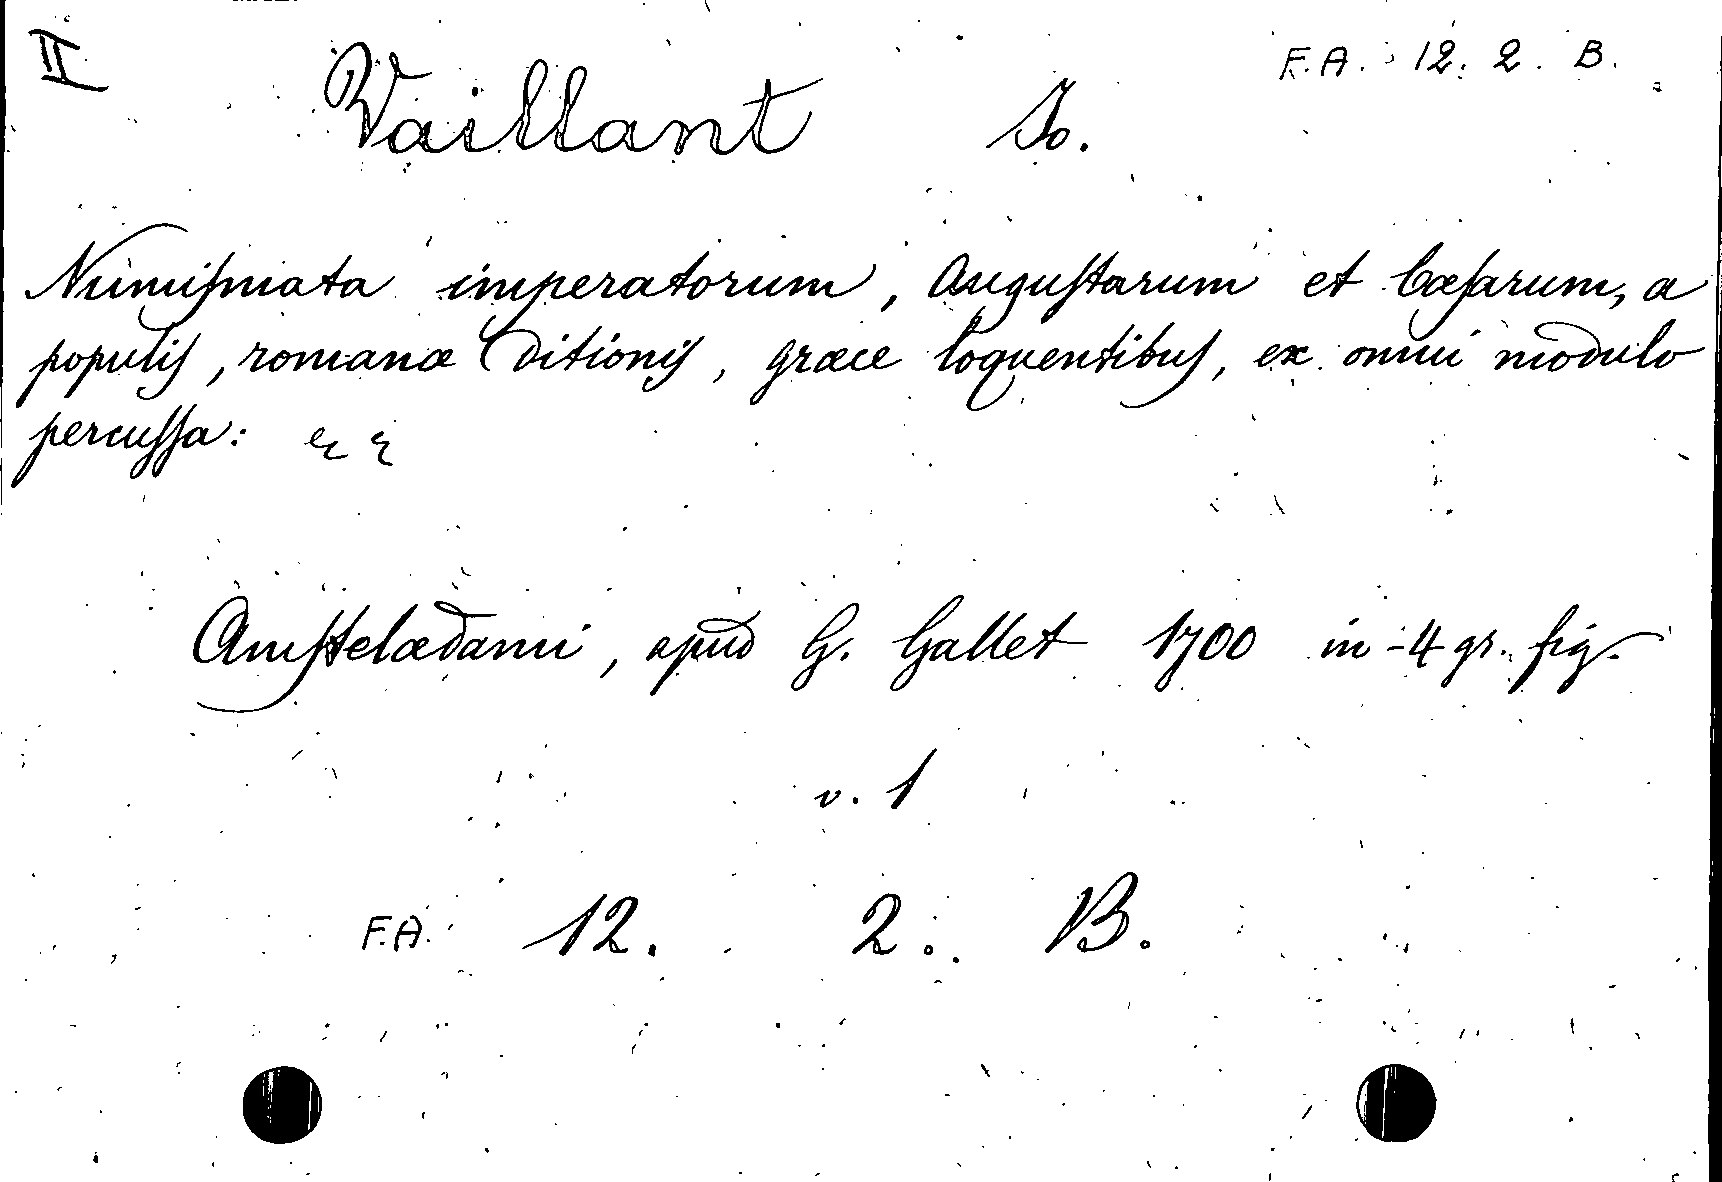 II
F.A. 12. 2. B.
Vaillant Jo.
Numismata imperatorum, Augustarum et Cæsarum, a
populis, romanæ ditionis, græce loquentibus, ex omni modulo
percussa:
Amstelædami, apud G. Gallet 1700 in-4 gr. fig.
v. 1
F.A. 12. 2. B.